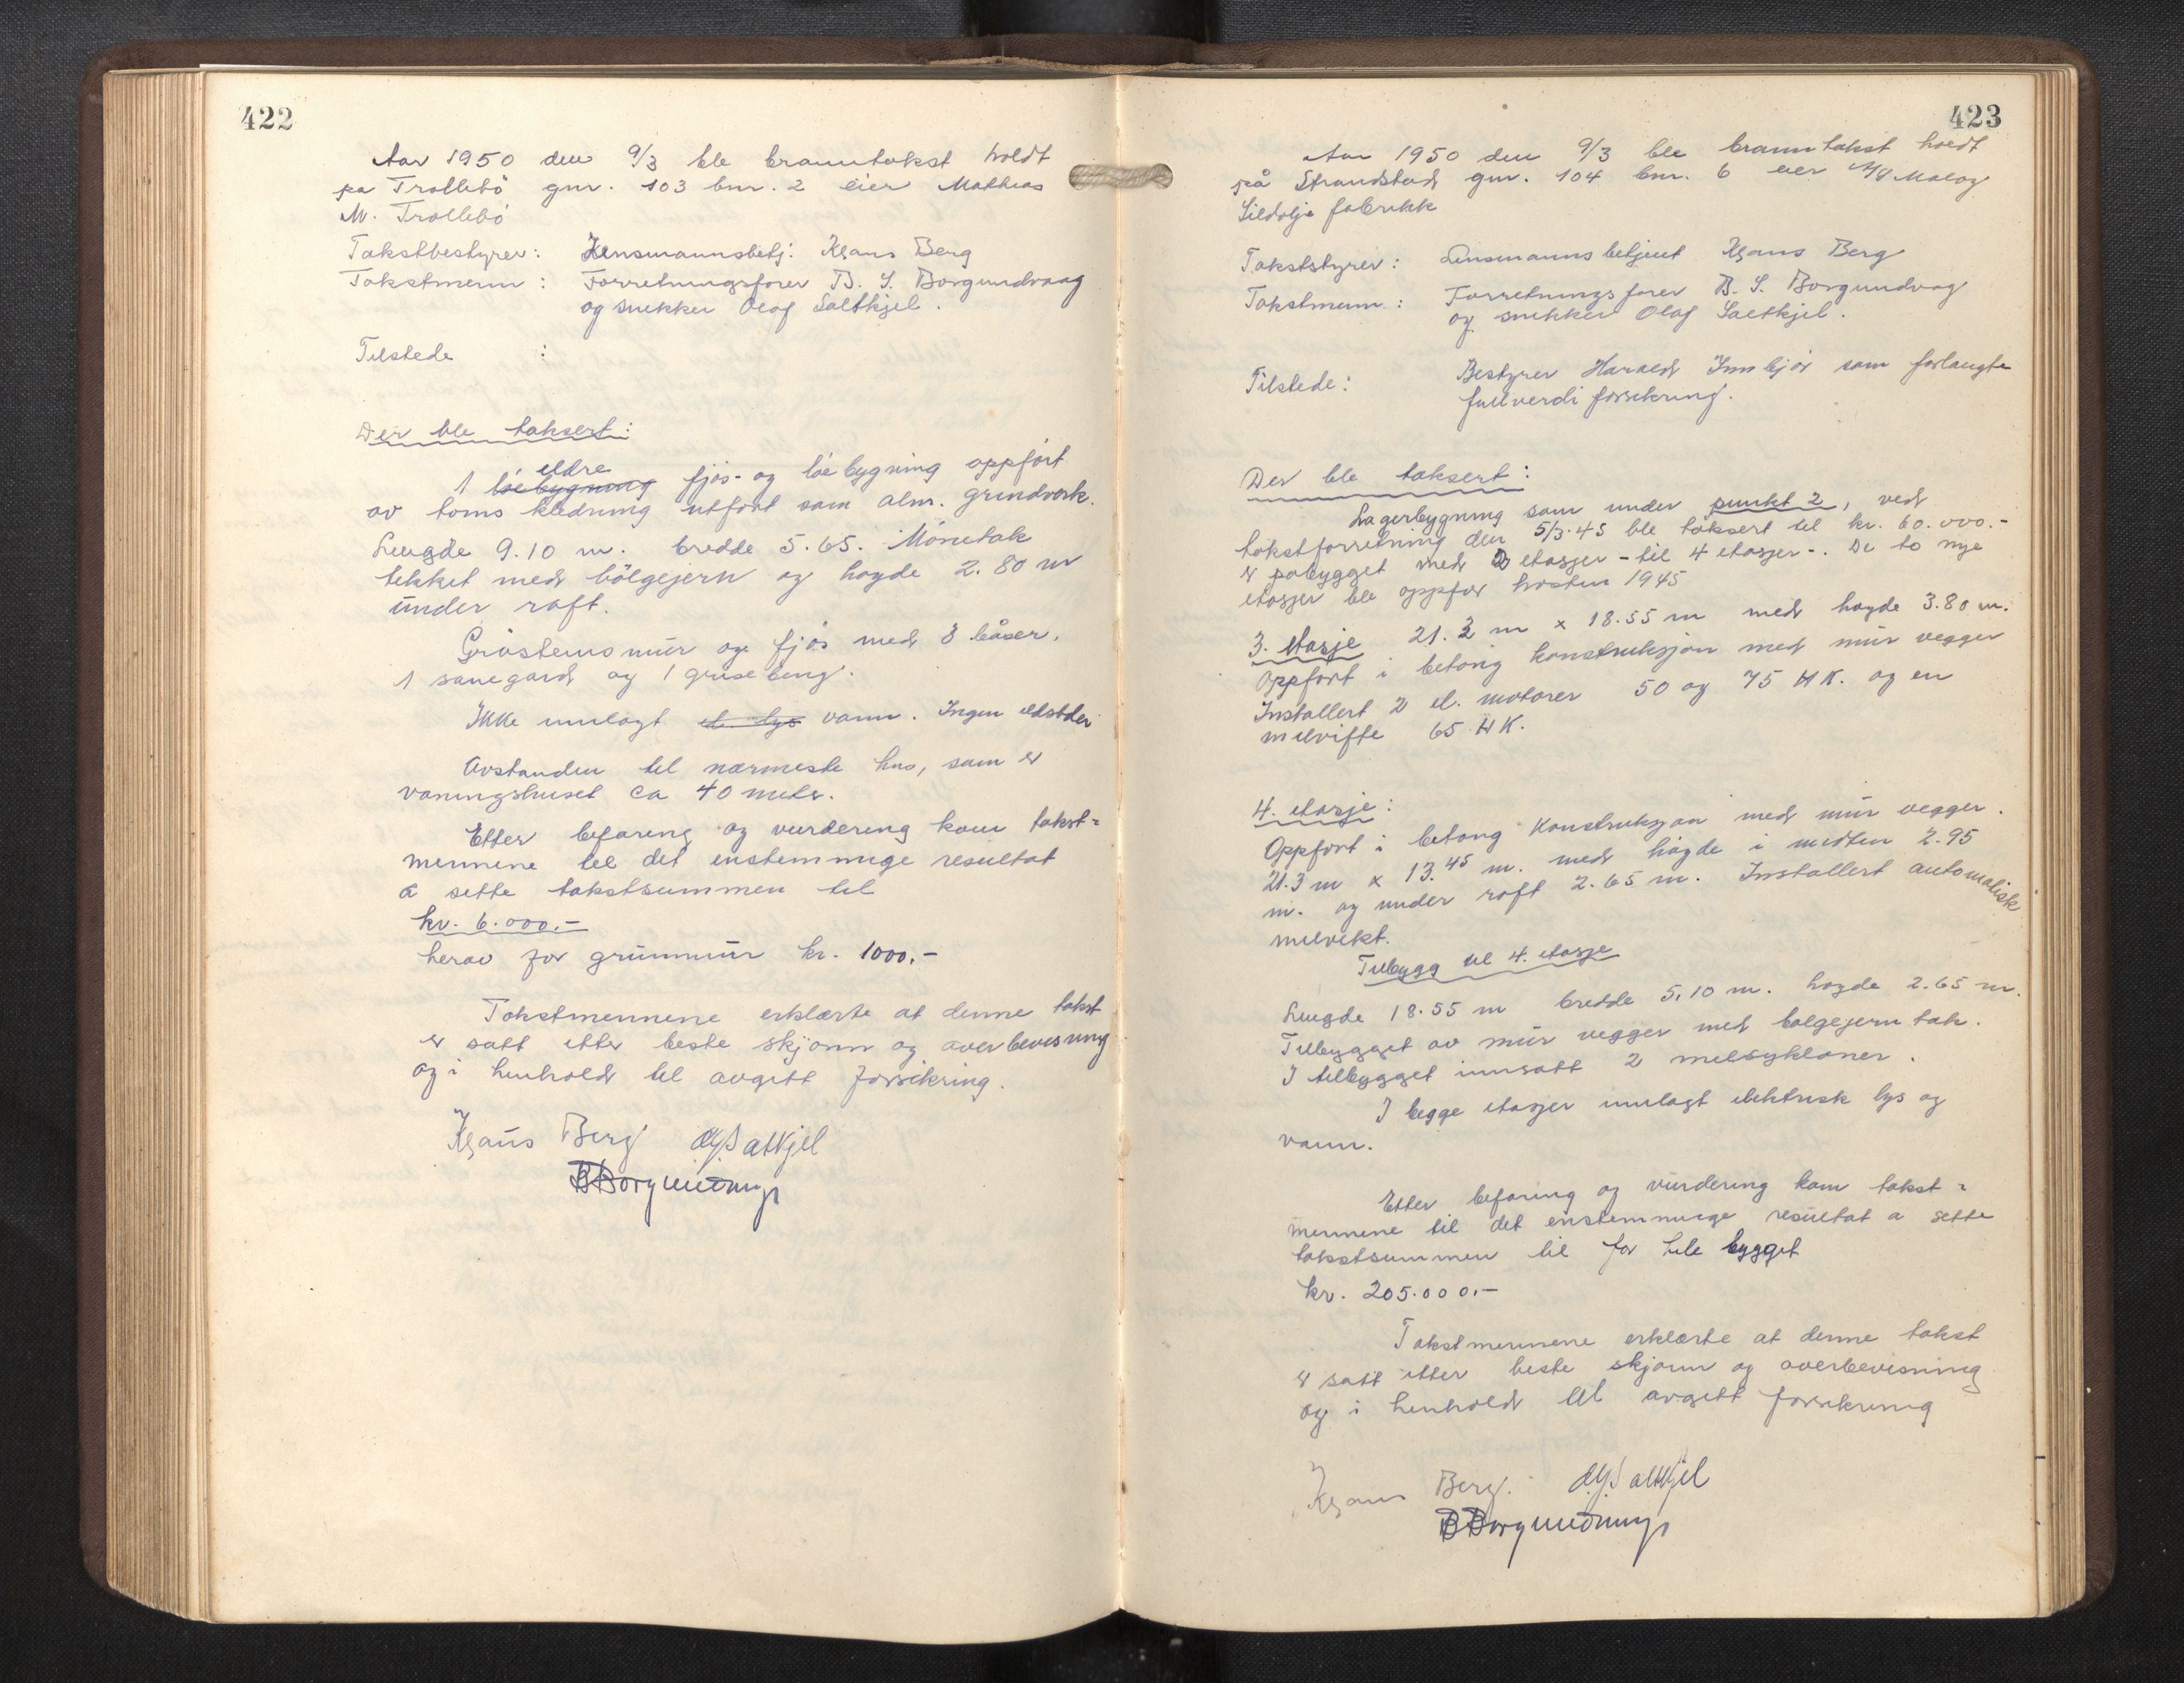 422
Aar 1950 den 9/3 ble branntakst holdt
pa Trollebö gnr. 103 bnr. 2 eier Mathias
M. Trollebö
Takstbestyrer: Lensmannsbetj. Klaus Berg
Takstmenn : Forretningsfører B. S. Borgundvaag
og snekker Olaf Saltkjel.
Tilstede :
Der ble taksert:
eldre
1 löebygning fjös- og löebygning oppfört
av toms kledning utfört som alm. grindverk.
Lengde 9.10 m. bredde 5.65. Mönetak
tekket med bölgejern og høyde 2.80 m
under raft.
Gråsteinsmur og fjös med 3 båser,
1 sauegard og 1 grisebeng.
Ikke innlagt el. lys vann. Ingen ildsteder
Avstanden til nærmeste hus, som er
våningshuset ca 40 meter.
Etter befaring og vurdering kom takst-
mennene til det enstemmige resultat
a sette takstsummen til
kr. 6.000.-
herav for grunnmur kr. 1000.-
Takstmennene erklærte at denne takst
er satt etter beste skjønn og overbevisning
og i henhold til avgitt forsikring.
Klaus Berg O.J. Saltkjel
B Borgundvaag
423
Aar 1950 den 9/3 ble branntakst holdt
på Strandstad gnr. 104 bnr. 6 eier A/S Måløy
Sildolje fabrikk
Takststyrer: Lensmannsbetjent Klaus Berg
Takstmenn: Forretningsfører B. S. Borgundvåg
og snekker Olaf Saltkjel.
Tilstede: Bestyrer Harald som forlangte
fullverdi forsikring.
Der ble taksert:
Lagerbygning som under punkt 2, ved
takstforretning den 5/3.45 ble taksert til kr. 60.000.-
er påbygget med 2 etasjer - til 4 etasjer -. De to nye
etasjer ble oppfør høsten 1945
3. etasje 21.3 m x 18.55 m med høyde 3.80 m.
Oppført i betong konstruksjon med mur vegger
Installert 2 el. motorer 50 og 75 HK. og en
melvifte 65 HK.
4. etasje:
Oppført i betong konstruksjon med mur vegger.
21.3 m x 13.45 m. med høyde i midten 2.95
m. og under raft 2.65 m. Installert automatisk
melvekt.
Tilbygg til 4. etasje
Lengde 18.55 m bredde 5,10 m. høyde 2.65 m.
Tilbygget av mur vegger med bølgejern tak.
I tilbygget innsatt 2 melsykloner.
I begge etasjer innlagt elektrisk lys og
vann.
Etter befaring og vurdering kom takst-
mennene til det enstemmige resultat a sette
takstsummen til for hele bygget
kr. 205.000.-
Takstmennene erklærte at denne takst
er satt etter beste skjønn og overbevisning
og i henhold til avgitt forsikring
Klaus Berg. O.J. Saltkjel
B Borgundvaag